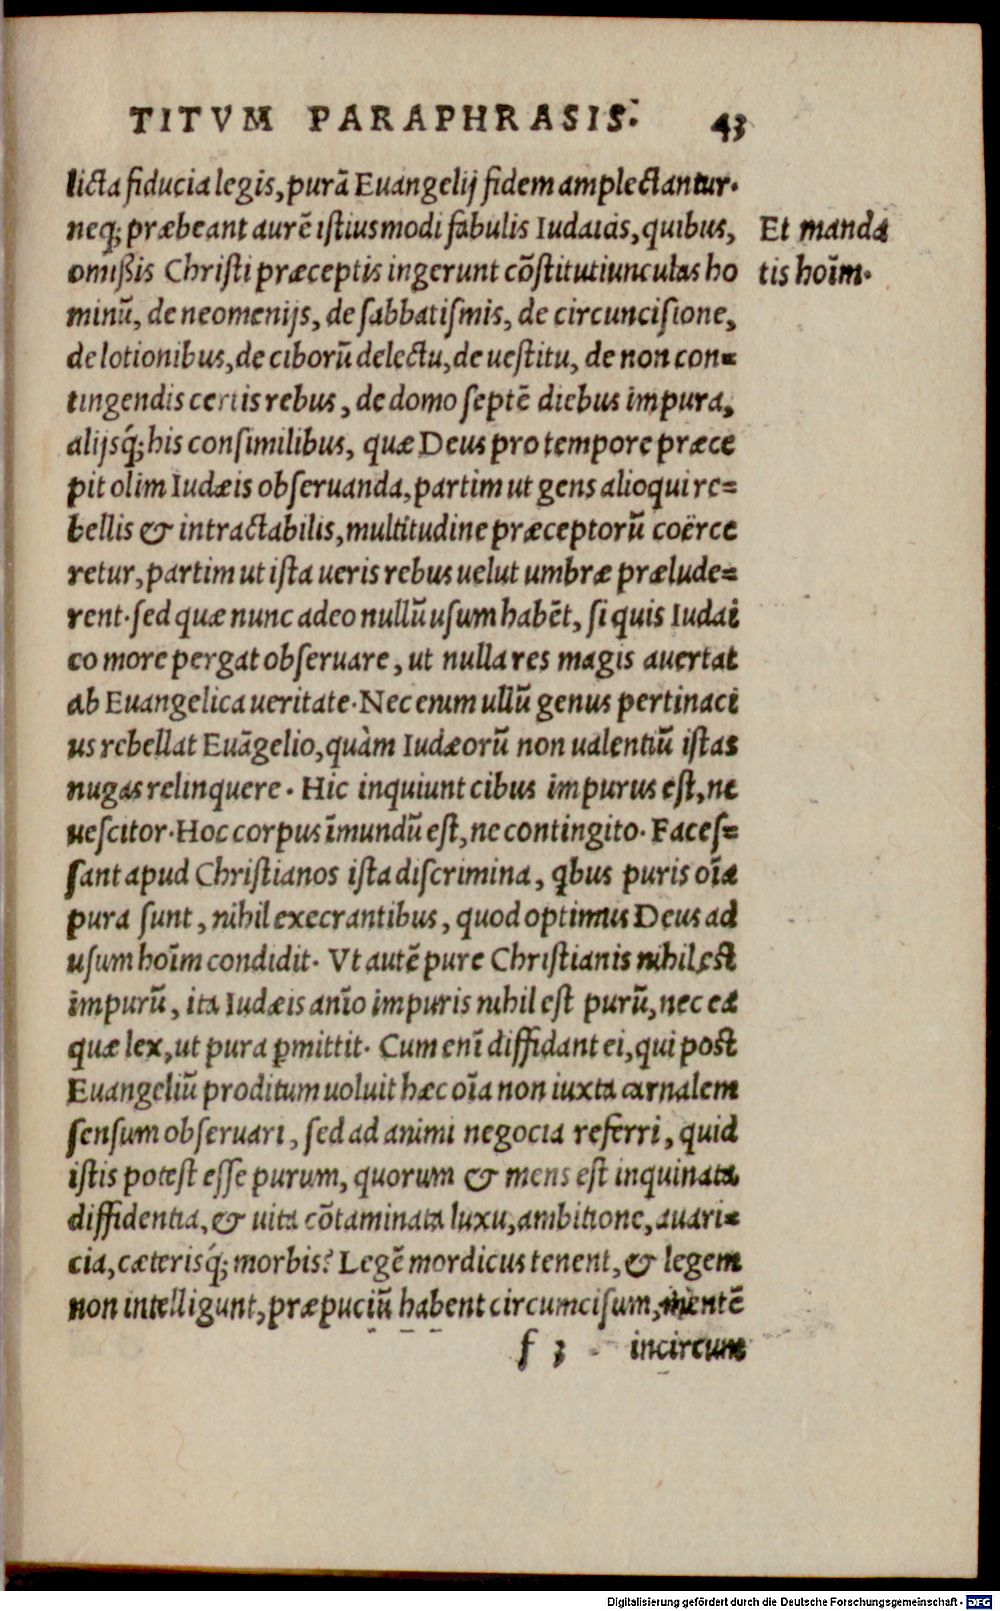 TITVM PARAPHRASIS. 43
licta fiducia legis, purā Euangelij fidem amplectantur.
neq; præbeant aurē istiusmodi fabulis Iudaicis, quibus,
Et manda
omißis Christi præceptis ingerunt cōstitutiunculas ho
tis hoīm.
minū, de neomenijs, de sabbatismis, de circuncisione,
de lotionibus, de ciborū delectu, de uestitu, de non con=
tingendis certis rebus, de domo septē diebus impura,
alijsq́; his consimilibus, quæ Deus pro tempore præce
pit olim Iudæis obseruanda, partim ut gens alioqui re=
bellis & intractabilis, multitudine præceptorū coërce
retur, partim ut ista ueris rebus uelut umbræ prælude=
rent. sed quæ nunc adeo nullū usum habēt, si quis Iudai
co more pergat obseruare, ut nulla res magis auertat
ab Euangelica ueritate. Nec enim ullū genus pertinaci
us rebellat Euāgelio, quàm Iudæorū non ualentiū istas
nugas relinquere. Hic inquiunt cibus impurus est, ne
uescitor. Hoc corpus īmundū est, ne contingito. Faces=
sant apud Christianos ista discrimina, qbus puris oīa
pura sunt, nihil execrantibus, quod optimus Deus ad
usum hoīm condidit. Vt autē pure Christianis nihil est
impurū, ita Iudæis anīo impuris nihil est purū, nec ea
quæ lex, ut pura ꝑmittit. Cum enī diffidant ei, qui post
Euangeliū proditum uoluit hæc oīa non iuxta carnalem
sensum obseruari, sed ad animi negocia referri, quid
istis potest esse purum, quorum & mens est inquinata
diffidentia, & uita cōtaminata luxu, ambitione, auari=
cia, cæterisq́; morbis? Legē mordicus tenent, & legem
non intelligunt, præpuciū habent circumcisum, mentē
f 3 incircum
Digitalisierung gefördert durch die Deutsche Forschungsgemeinschaft - DFG